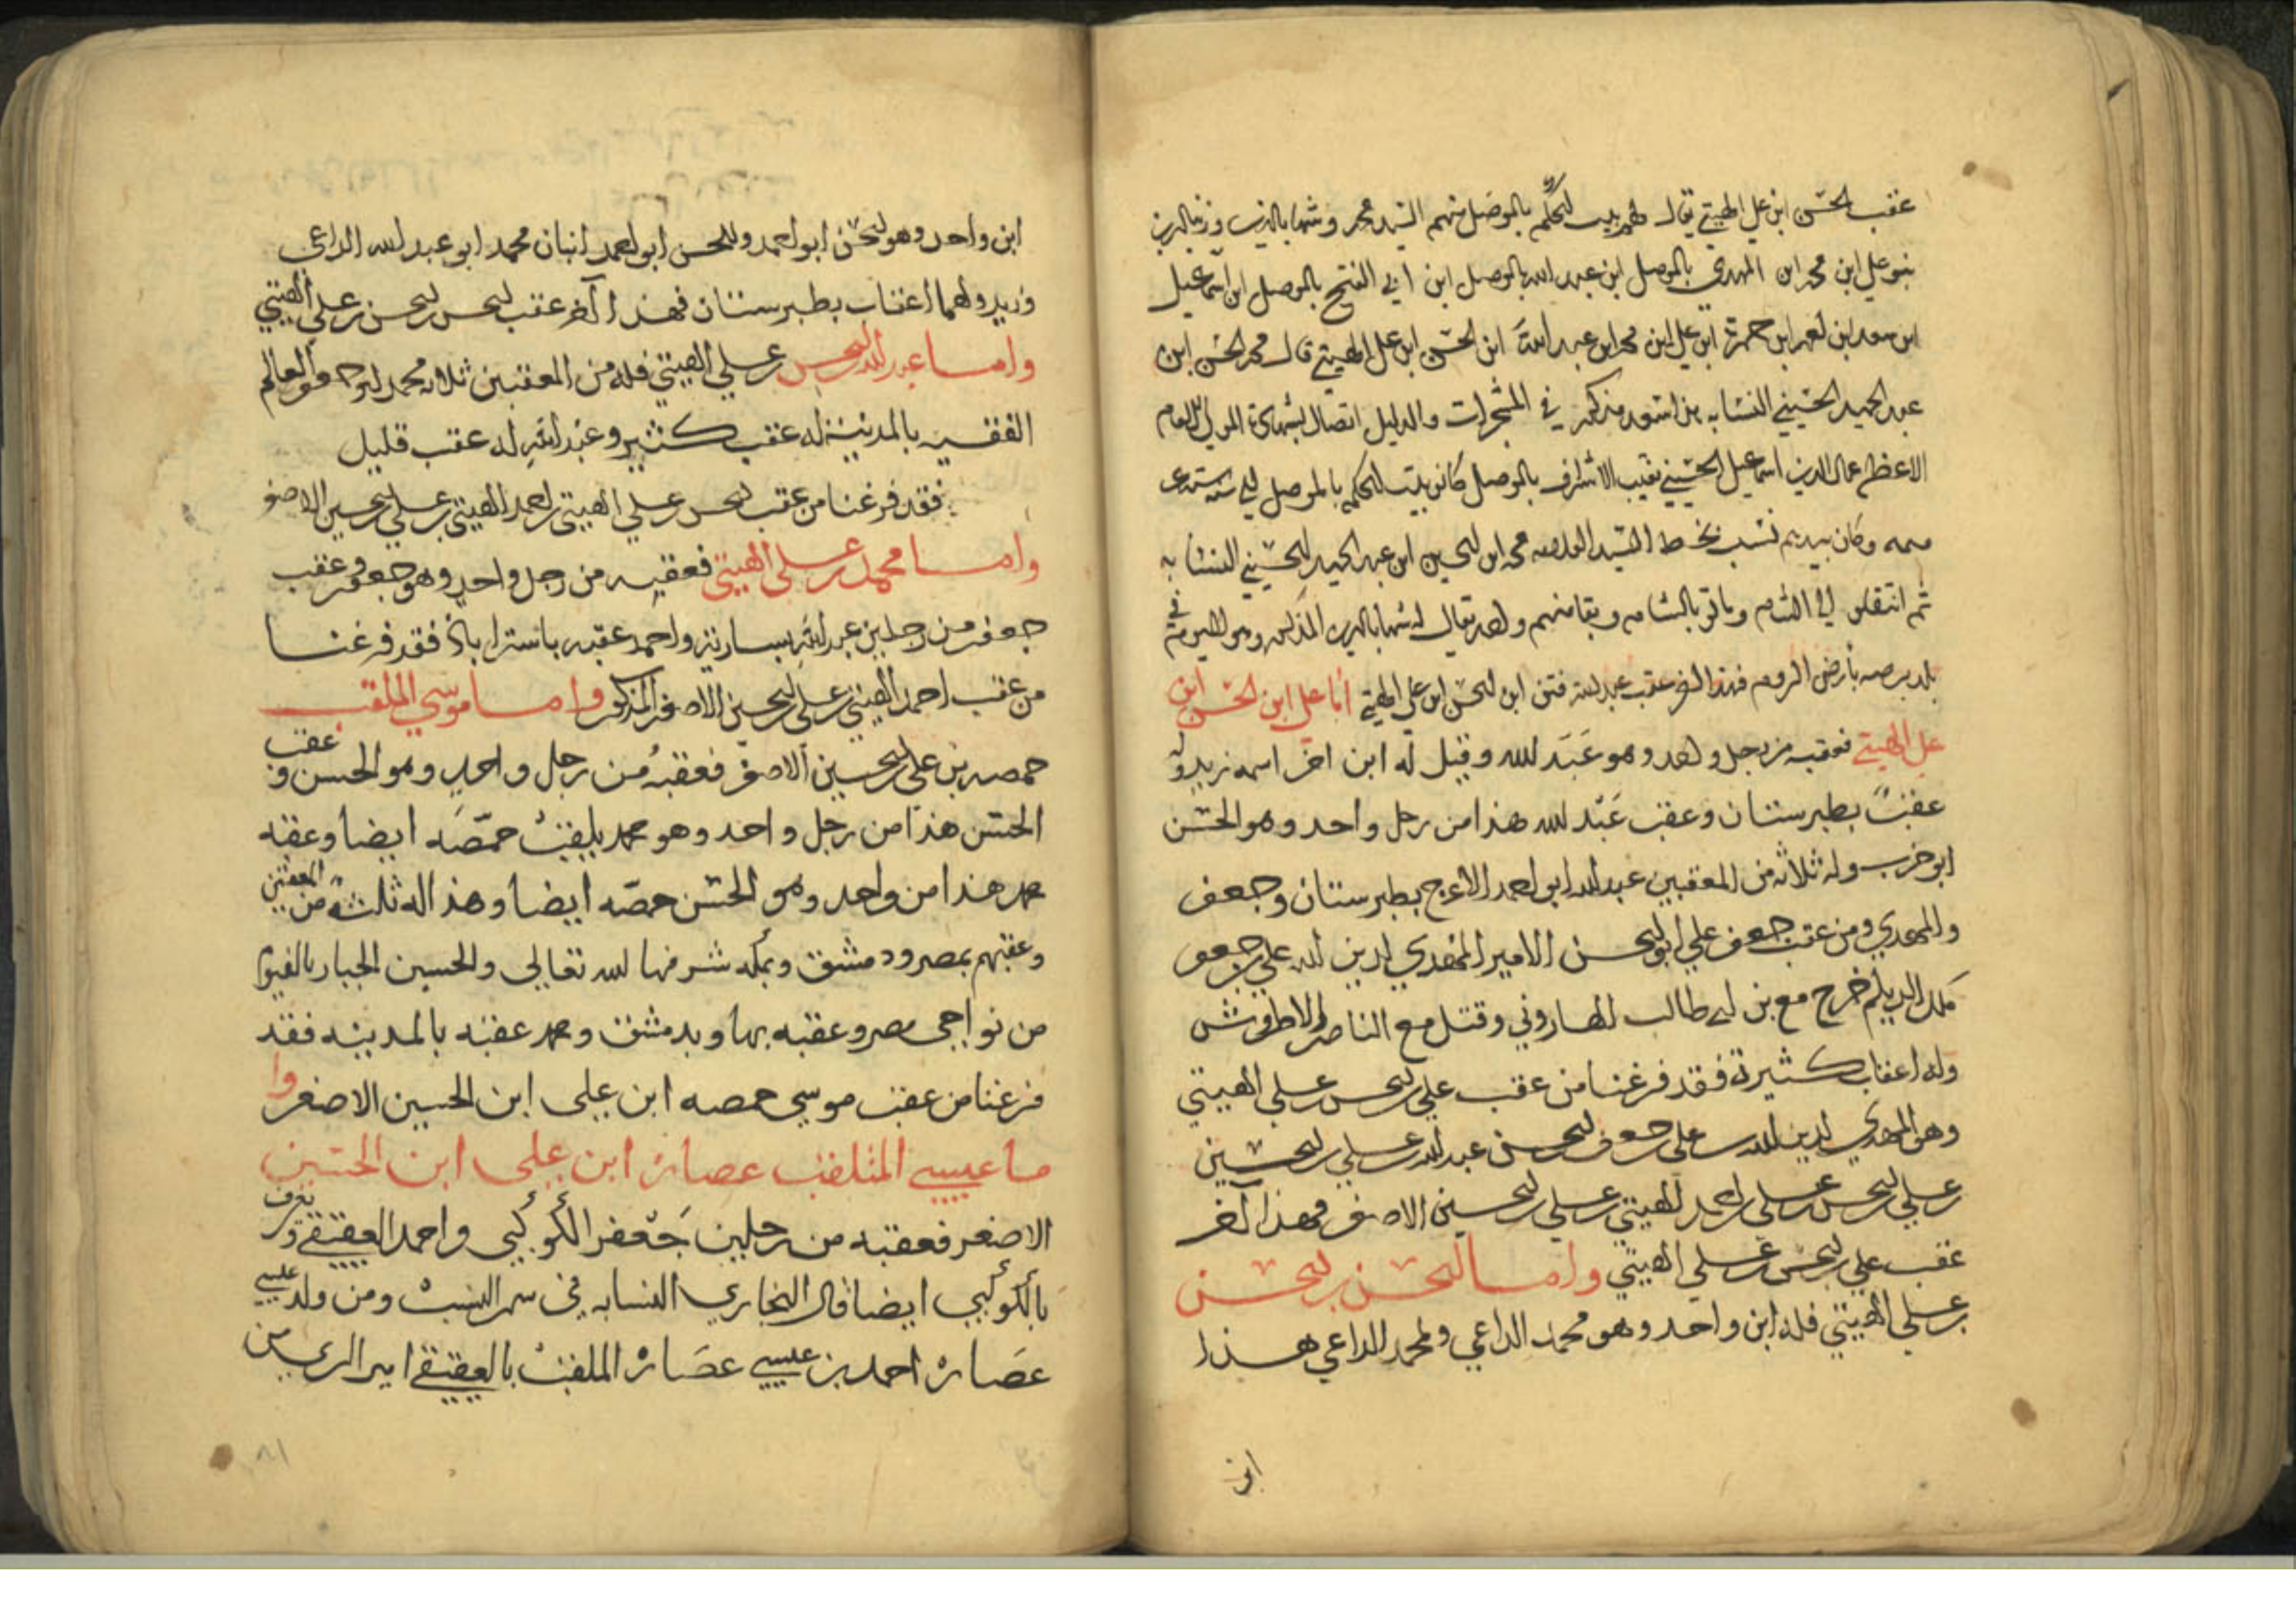 عقب الحسن ابن علي الهيتي يقال لهم بيت المحكم بالموصل منهم السيد محمد وشهاب الدين وزين الدين
بنو علي ابن محمد ابن المهدي بالموصل ابن عبد الله بالموصل ابن ابي الفتح بالموصل ابن اسماعيل
ابن حمزة ابن علي ابن محمد ابن عبد الله ابن الحسن ابن علي الهيتي قال محمد الحسن ابن
عبد الحميد الحسيني النسابه في المشجرات والدليل اتصال المولي
الاعظم عماد الدين اسماعيل الحسيني نقيب الاشراف بالموصل كانو بيت المحكم بالموصل
وكان بيدهم نسب بخط السيد محمد ابن الحسين ابن عبد الحميد الحسيني النسابه
ثم انتقلو الي الشام وماتو بالشام وبقا منهم واحد يقال له شهاب الدين المذكور وهو اليوم في
بلد برصه بأرض الروم فهذا اخر عقب عبد الله ابن الحسن ابن علي الهيتي أما علي ابن الحسن ابن
علي الهيتي فعقبه من رجل واحد وهو عبد الله وقيل له ابن اخر اسمه زيد وله
عقب بطبرستان وعقب عبد الله هذا من رجل واحد وهو الحسن
ابو حرب وله ثلاثه من المعقبين عبد الله ابو احمد الاعرج بطبرستان وجعفر
والمهدي ومن عقب جعفر علي ابو الحسن الامير المهدي لدين الله علي بن جعفر
ملك الديلم خرج مع بن ابي طالب الهاروني وقتل مع الناصر الاطروش
وله اعقاب كثيرة فقد فرغنا من عقب علي بن الحسن بن علي الهيتي
وهو المهدي لدين الله علي جعفر الحسن عبد الله بن علي بن الحسين
بن علي بن الحسن بن علي بن احمد الهيتي بن علي بن الحسين الاصغر فهذا آخر
عقب علي بن الحسن بن علي الهيتي واما الحسن بن الحسن
بن علي الهيتي فله ابن واحد وهو محمد الداعي ولمحمد الداعي هذا
ابن
ابن واحد وهو الحسن ابو احمد وللحسن ابو احمد ابنان محمد ابو عبد الله الداعي
وزيد ولهما اعقاب بطبرستان فهذا آخر عقب الحسن بن الحسن بن علي الهيتي
واما عبد الله بن الحسن بن علي الهيتي فله من المعقبين ثلاثه محمد ابو جعفر العالم
الفقيه بالمدينة له عقب كثير وعبد الله له عقب قليل
فقد فرغنا من عقب الحسن بن علي الهيتي بن احمد الهيتي بن علي بن الحسين الاصغر
واما محمد بن علي الهيتي فعقبه من رجل واحد وهو جعفر وعقب
جعفر من رجلين عبد الله بسارية واحمد عقبه باستراباذ فقد فرغنا
من عقب احمد الهيتي بن علي بن الحسين الاصغر المذكور واما موسي الملقب
حمصه بن علي بن الحسين الاصغر فعقبهُ من رجل واحد وهو الحسن وعقب
الحسن هذا من رجل واحد وهو محمد يلقب حمّصَه ايضا وعقبه
محمد هذا من واحد وهو الحسن حمصّه ايضا وهذا له ثلثة من المعقبين
وعقبهم بمصر ودمشق وبمكه شرفها الله تعالي والحسين الجبار بالفيوم
من نواحي مصر وعقبه بها وبدمشق ومحمد عقبه بالمدينه فقد
فرغنا من عقب موسي حمصه ابن علي ابن الحسين الاصغر وا
ما عيسي الملقب عصارة ابن علي ابن الحسين
الاصغر فعقبه من رجلين جَعفر الكوكبي واحمد العقيقي ويعرف
بالكوكبي ايضا قال البخاري النسابه في سر النسب ومن ولد عيسي
عصَارة احمد بن عيسي عصَارة الملقب بالعقيقي امير الري من
١٨